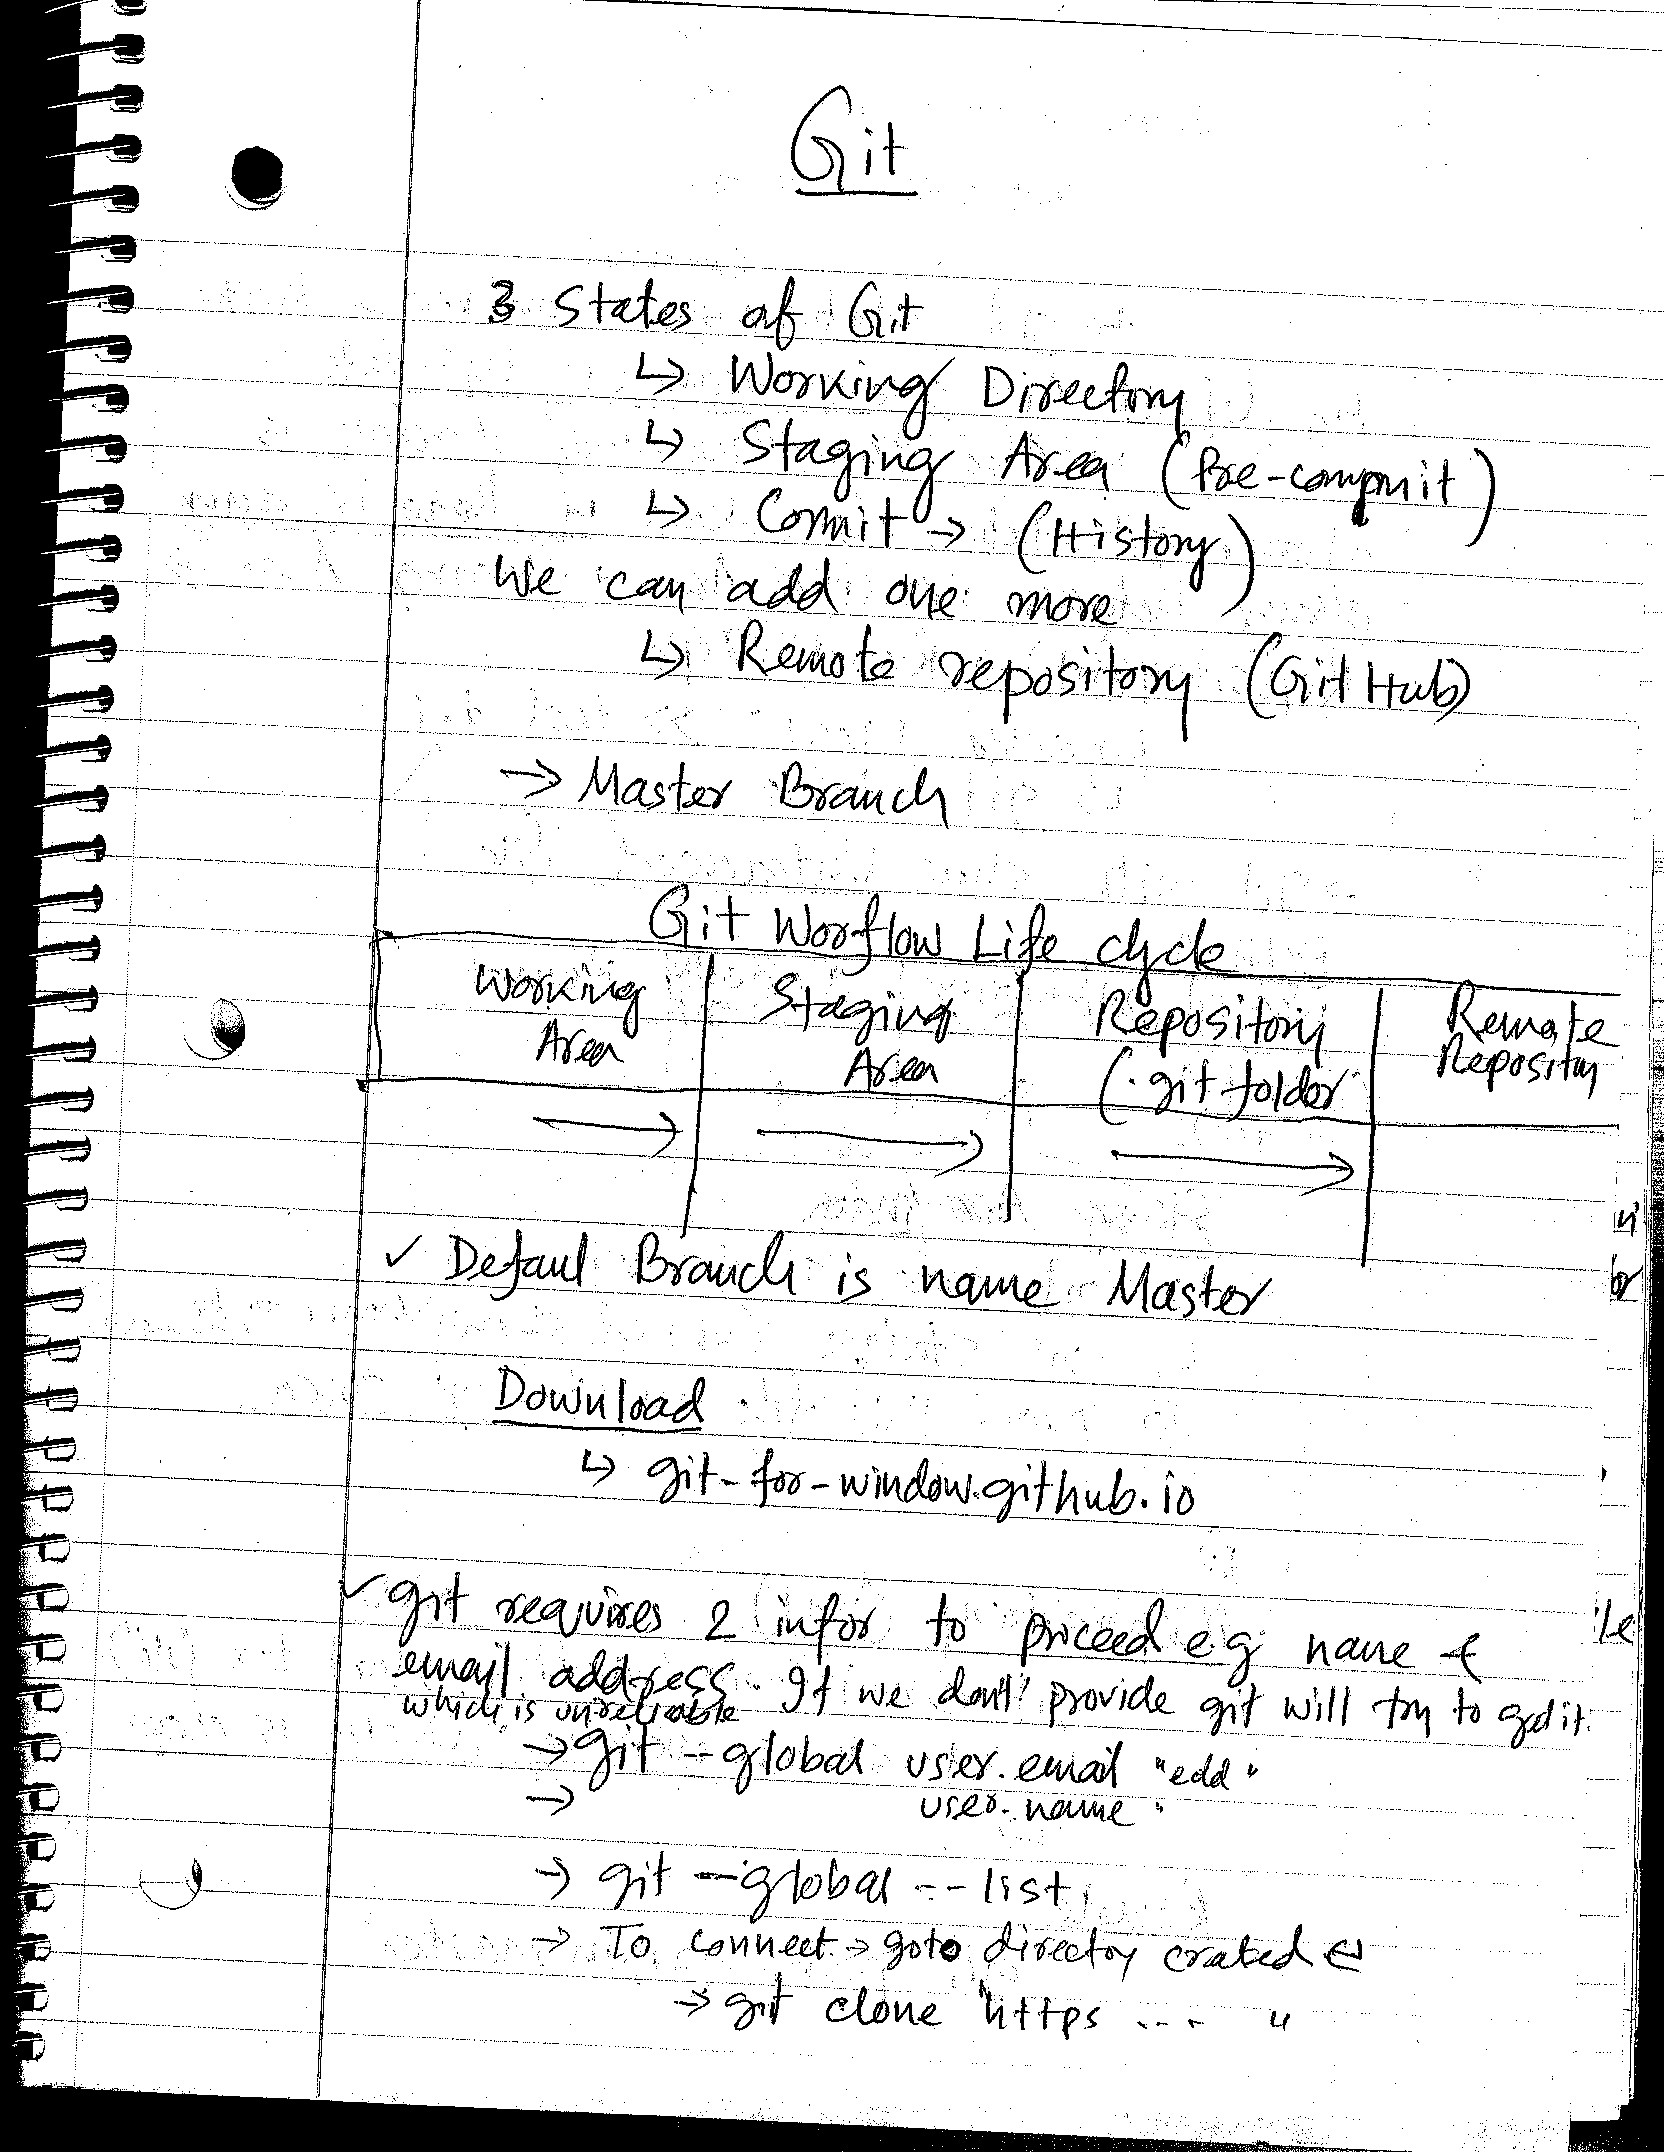 Git
3 States of Git
↳ Working Directory
↳ Staging Area (Pre-commit)
↳ Commit → (History)
We can add one more
↳ Remote repository (GitHub)
→ Master Branch
Git Worflow Life cycle
Working Area | Staging Area | Repository (.git folder | Remote Repository
→ → →
✓ Defaul Branch is name Master
Download
↳ git-for-window.github.io
✓ git requires 2 infor to proceed e.g name &
email address. If we don't provide git will try to get it.
which is unreliable
→ git --global user.email "edd"
→ user.name "
→ git --global --list
→ To connect → goto directory crated ↵
→ git clone "https ... "